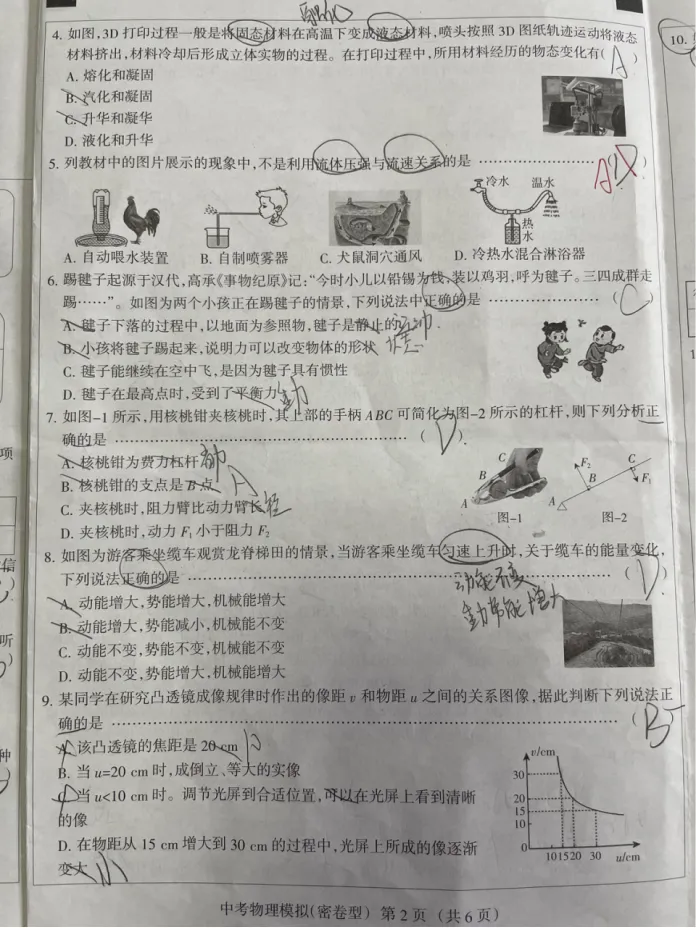 4. 如图,3D 打印过程一般是将固态材料在高温下变成液态材料,喷头按照 3D 图纸轨迹运动将液态
材料挤出,材料冷却后形成立体实物的过程。在打印过程中,所用材料经历的物态变化有( A )
A. 熔化和凝固
B. 汽化和凝固
C. 升华和凝华
D. 液化和升华
5. 列教材中的图片展示的现象中,不是利用流体压强与流速关系的是 ……………………( )
冷水 温水
热水
A. 自动喂水装置 B. 自制喷雾器 C. 犬鼠洞穴通风 D. 冷热水混合淋浴器
6. 踢毽子起源于汉代,高承《事物纪原》记:“今时小儿以铅锡为钱,装以鸡羽,呼为毽子。三四成群走
踢……”。如图为两个小孩正在踢毽子的情景,下列说法中正确的是 ……………………( C )
A. 毽子下落的过程中,以地面为参照物,毽子是静止的 运动
B. 小孩将毽子踢起来,说明力可以改变物体的形状
C. 毽子能继续在空中飞,是因为毽子具有惯性
D. 毽子在最高点时,受到了平衡力
7. 如图-1 所示,用核桃钳夹核桃时,其上部的手柄 ABC 可简化为图-2 所示的杠杆,则下列分析正
确的是 ……………………………………………( D )
A. 核桃钳为费力杠杆
B. 核桃钳的支点是 B 点 A
C. 夹核桃时,阻力臂比动力臂长
D. 夹核桃时,动力 F₁ 小于阻力 F₂
C B A 图-1
F₂ C B F₁ A 图-2
8. 如图为游客乘坐缆车观赏龙脊梯田的情景,当游客乘坐缆车匀速上升时,关于缆车的能量变化,
下列说法正确的是 ……………………………………………( D )
动能不变
重力势能增大
A. 动能增大,势能增大,机械能增大
B. 动能增大,势能减小,机械能不变
C. 动能不变,势能不变,机械能不变
D. 动能不变,势能增大,机械能增大
9. 某同学在研究凸透镜成像规律时作出的像距 v 和物距 u 之间的关系图像,据此判断下列说法正
确的是 ……………………………………………( B )
A. 该凸透镜的焦距是 20 cm 10
B. 当 u=20 cm 时,成倒立、等大的实像
C. 当 u<10 cm 时。调节光屏到合适位置,可以在光屏上看到清晰
的像
D. 在物距从 15 cm 增大到 30 cm 的过程中,光屏上所成的像逐渐
变大 小
v/cm
30
20
15
10
0 10 15 20 30 u/cm
中考物理模拟(密卷型) 第 2 页 (共 6 页)
10.
项
信
听
种